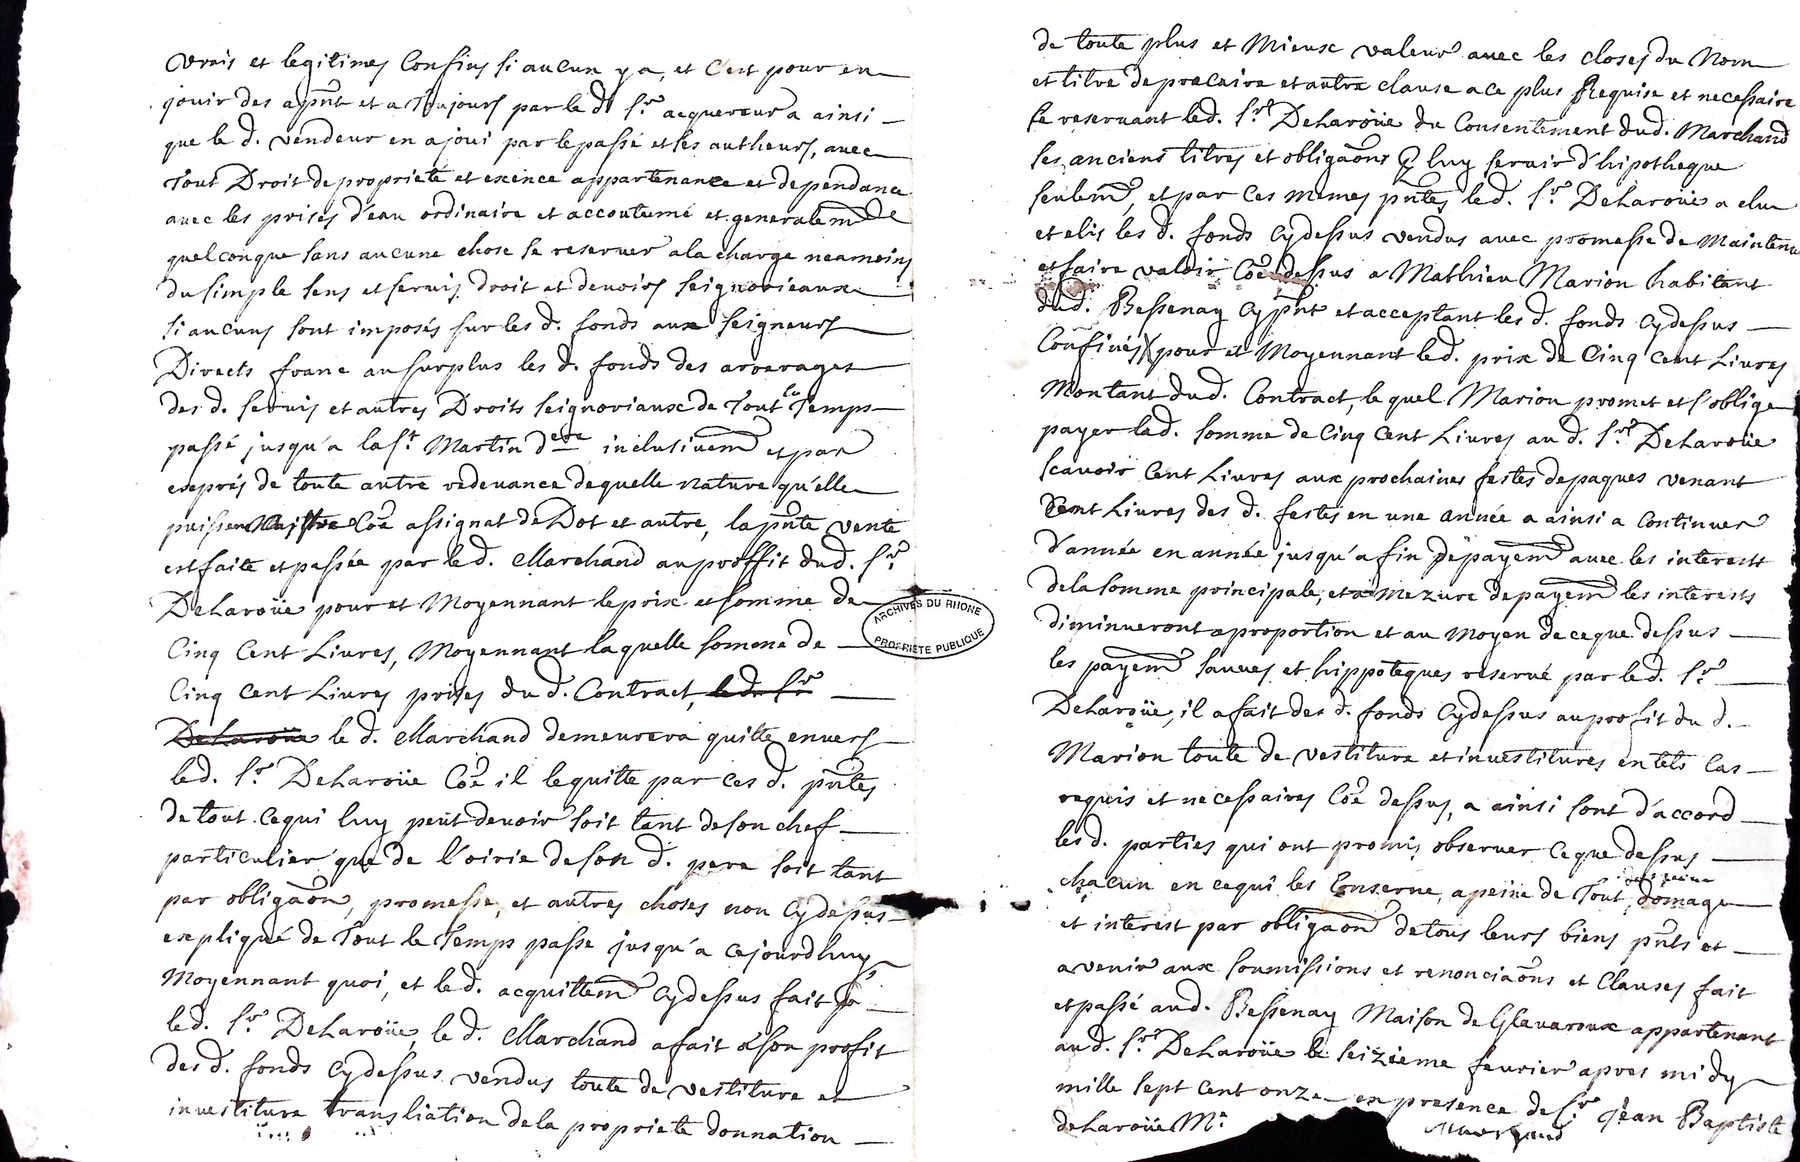 vrais et legitimes Confins si aucun y a, et C'est pour en
jouir des apnt et a Toujours par le d. Sr. acquereur a ainsi
que le d. vendeur en a joui par le passé et ses autheurs, avec
Tout Droit de proprieté et exence appartenance et dependance
avec les prises d'eau ordinaire et accoutumé et generalemt de
quelconque sans aucune chose se reserver a la charge neamoins
du simple sens et servis, droit et devoirs seignorieaux
si aucuns sont imposés sur les d. fonds aux seigneurs
Directs franc au surplus les d. fonds des arerages
des d. servis et autres Droits seignoriaux de Tout le Temps
passé jusqu'a la St. Martin dere inclusivemt et par
exprés de toute autre redevance de quelle nature qu'elle
puissent Coe assignat de Dot et autre, la pnte vente
est faite et passée par le d. Marchand au proffit dud. Sr.
DeLaroüe pour et Moyennant le prix et somme de
Cinq Cent Livres, Moyennant laquelle somme de
Cinq cent Livres prises du d. Contract, le d. Sr
DeLaroüe le d. Marchand demeurera quitte envers
le d. Sr. DeLaroüe Coe il le quitte par ces d. pntes
de tout ce qui luy peut devoir soit tant de son chef
particulier que de l'oirie de son d. pere soit tant
par obligaon, promesse, et autres choses non cydessus
expliqué de Tout le Temps passe jusqu'a cejourdhuy
Moyennant quoi, et le d. acquittemt cydessus fait p
le d. Sr. DeLaroüe, le d. Marchand a fait a son profit
des d. fonds cydessus vendus toute de vestiture et
investiture transliation de la proprieté donnation
ARCHIVES DU RHONE
PROPRIETE PUBLIQUE
de toute plus et Mieux valeur avec les closes du Nom
et titre de precaire et autre clause a ce plus Requise et necessaire
se reservant le d. Sr. DeLaroüe du Consentement dud. Marchand
ses anciens titres et obligaons p luy servir d'hipotheque
seulemt, et par ces memes pntes le d. Sr. DeLaroüe a elu
et elis les d. fonds cydessus vendus avec promesse de Maintenu
et faire valoir Coe dessus a Mathieu Marion habitant
dud. Bessenay cypnt et acceptant les d. fonds cydessus
Confinés pour et Moyennant le d. prix de Cinq Cent Livres
Montant dud. Contract, le quel Marion promet et s'oblige
payer lad. somme de Cinq Cent Livres au d. Sr. DeLaroüe
scavoir Cent Livres aux prochaines festes de paques venant
Cent Livres des d. festes en une année a ainsi a continuer
d'année en année jusqu'a fin de payemt avec les interests
de la somme principale, et a Mezure de payemt les interests
diminueront a proportion et au Moyen de ce que dessus
les payemt sauves et hippoteques reservé par le d. Sr.
DeLaroüe, il a fait des d. fonds cydessus au profit du d.
Marion toute de vestiture et investitures en tels Cas
requis et necessaires Coe dessus, a ainsi sont d'accord
les d. parties qui ont promis observer ce que dessus
chacun en cequi les Conserne, a peine de Tout, domage
et interest par obligaon de tous leurs biens pnts et
avenir aux soumissions et renonciaons et Clauses fait
et passé aud. Bessenay Maison de Glavaroux appartenant
au d. Sr. DeLaroüe le seizieme fevrier apres midy
mille sept cent onze en presence de Sr. Jean Baptiste
deLaroüe Mr.